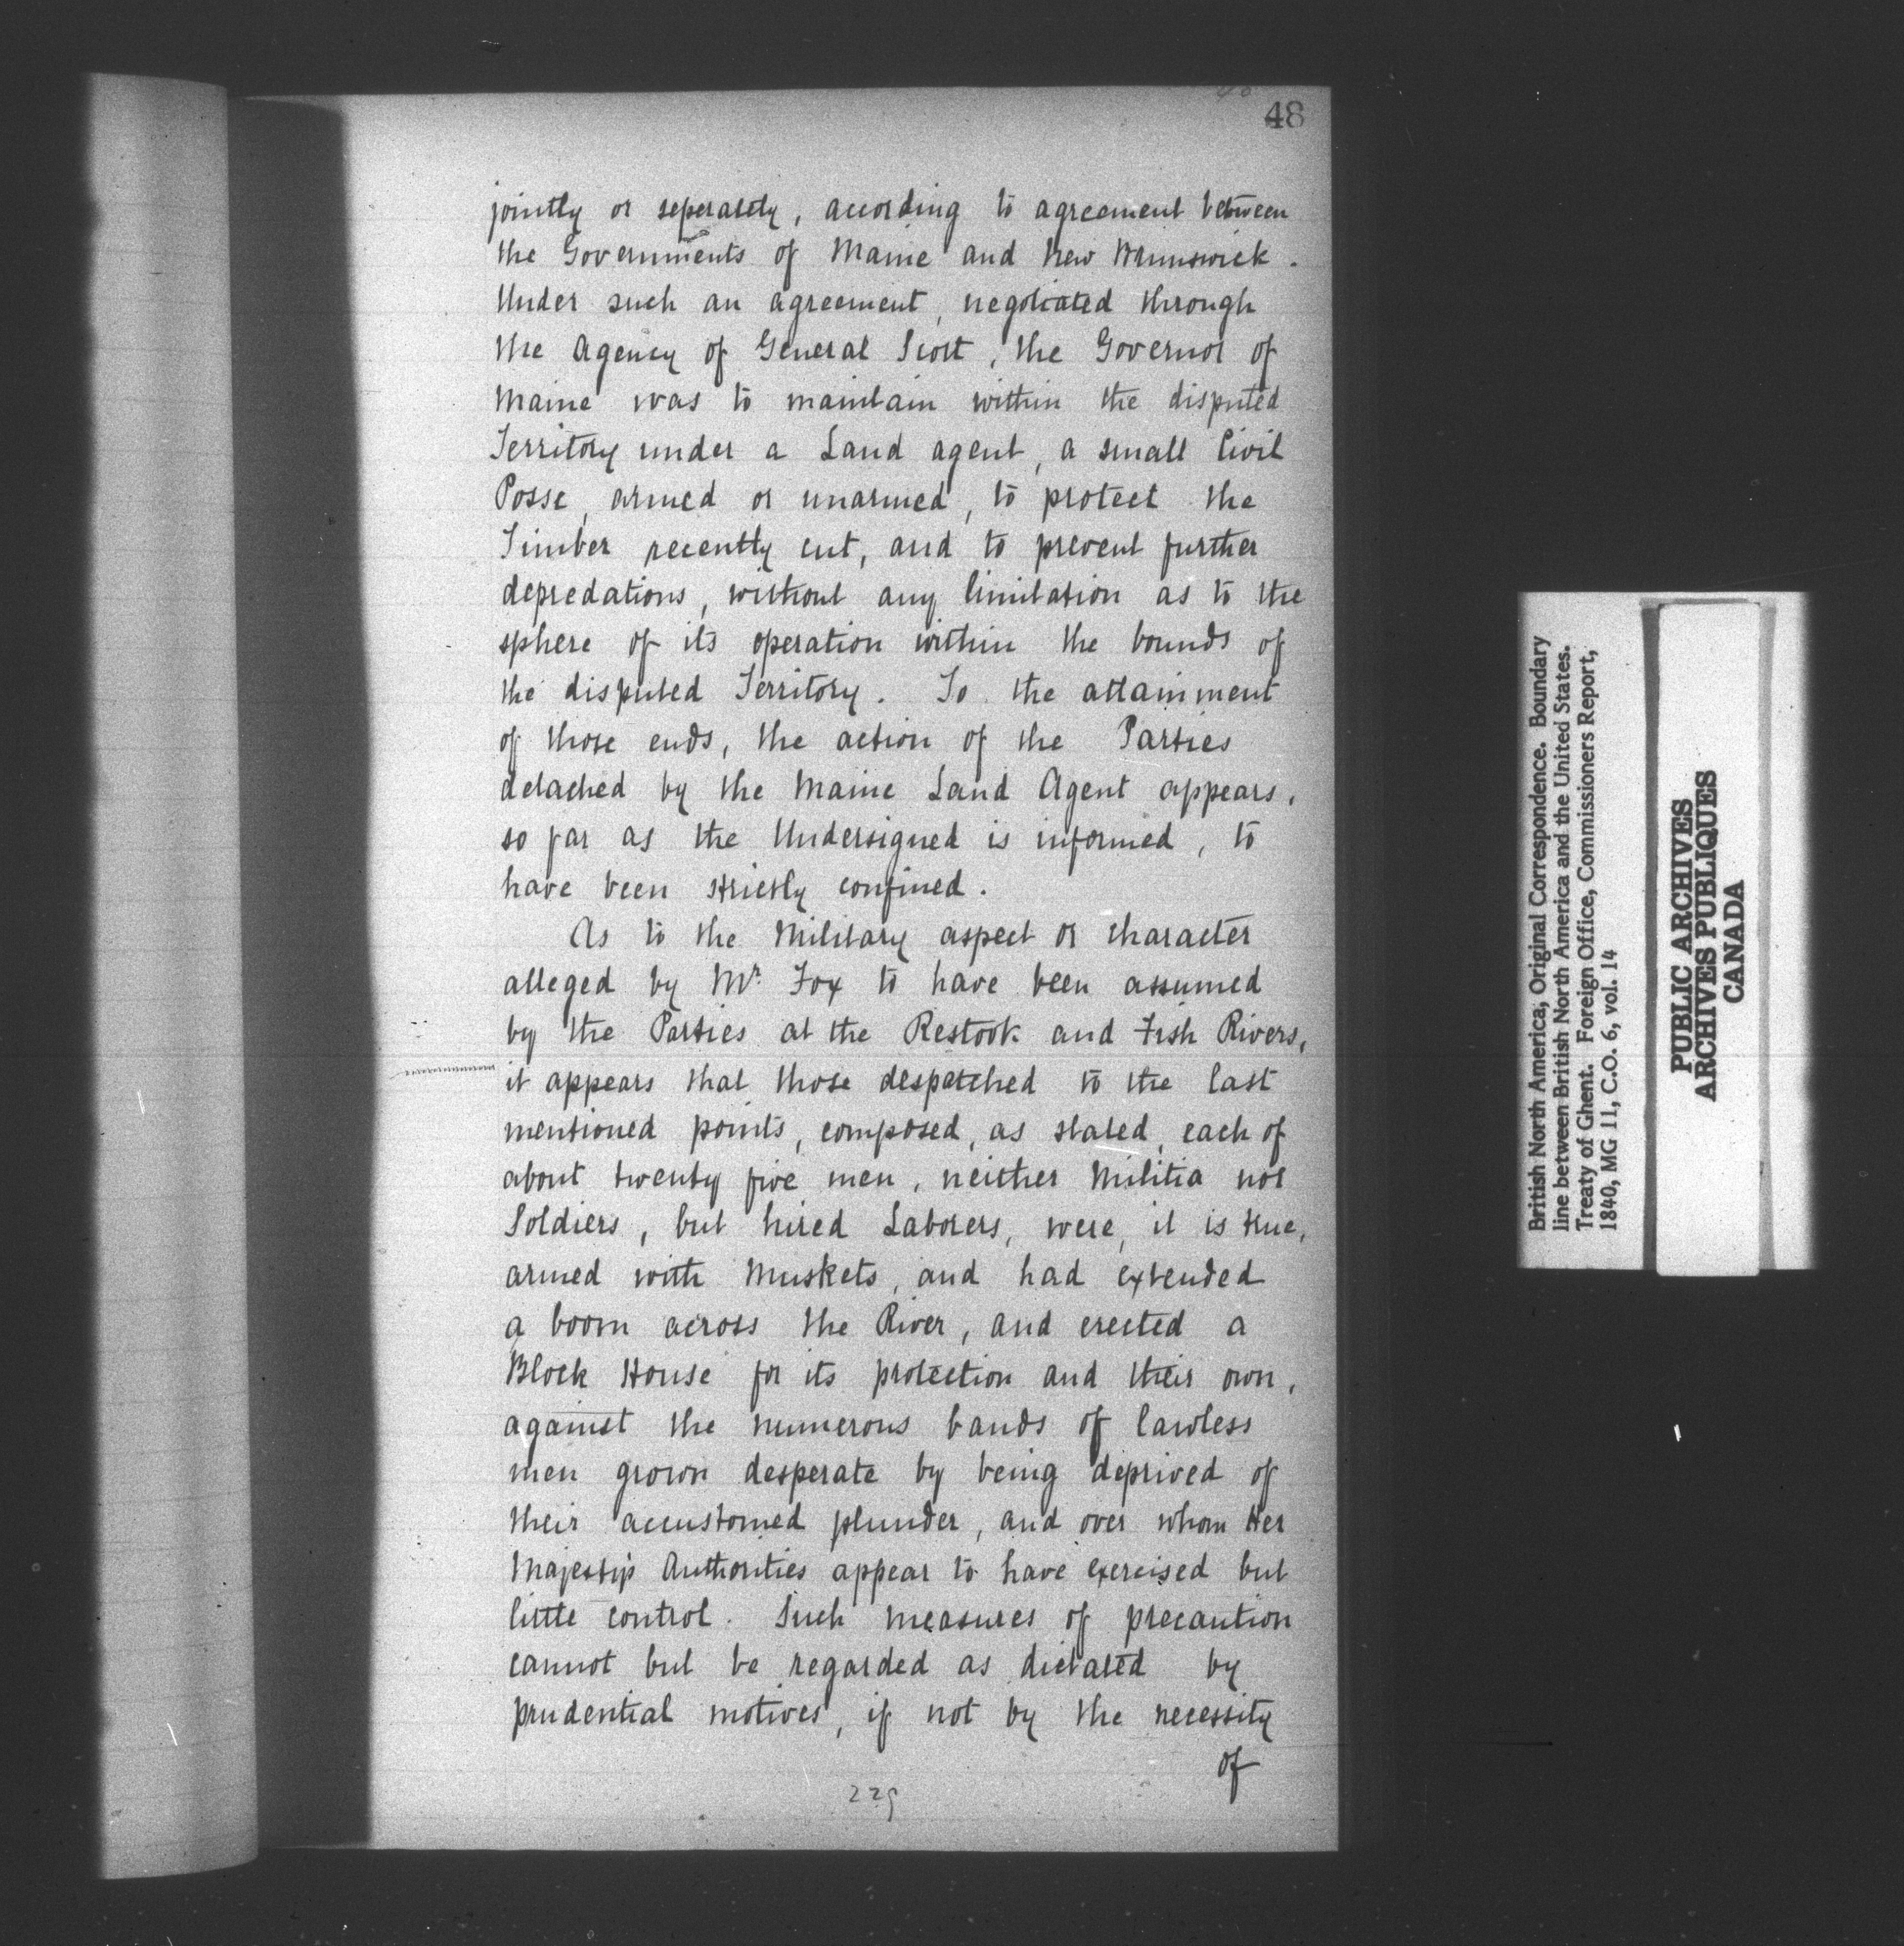 48
jointly or seperately, according to agreement between
the Governments of Maine and New Brunswick.
Under such an agreement, negotiated through
the Agency of General Scott, the Governor of
Maine was to maintain within the disputed
Territory under a Land agent, a small Civil
Posse, armed or unarmed, to protect the
Timber recently cut, and to prevent further
depredations, without any limitation as to the
sphere of its operation within the bounds of
the disputed Territory. To the attainment
of those ends, the action of the Parties
detached by the Maine Land Agent appears,
so far as the Undersigned is informed, to
have been strictly confined.
As to the Military aspect or character
alleged by Mr. Fox to have been assumed
by the Parties at the Restook and Fish Rivers,
it appears that those despatched to the last
mentioned points, composed, as stated, each of
about twenty five men, neither Militia nor
Soldiers, but hired Laborers, were, it is true,
armed with Muskets, and had extended
a boom across the River, and erected a
Block House for its protection and their own,
against the numerous bands of lawless
men grown desperate by being deprived of
their accustomed plunder, and over whom Her
Majesty's Authorities appear to have exercised but
little control. Such measures of precaution
cannot but be regarded as dictated by
prudential motives, if not by the necessity
of
229
British North America, Original Correspondence. Boundary
line between British North America and the United States.
Treaty of Ghent. Foreign Office, Commissioners Report,
1840, MG 11, C.O. 6, vol. 14
PUBLIC ARCHIVES
ARCHIVES PUBLIQUES
CANADA